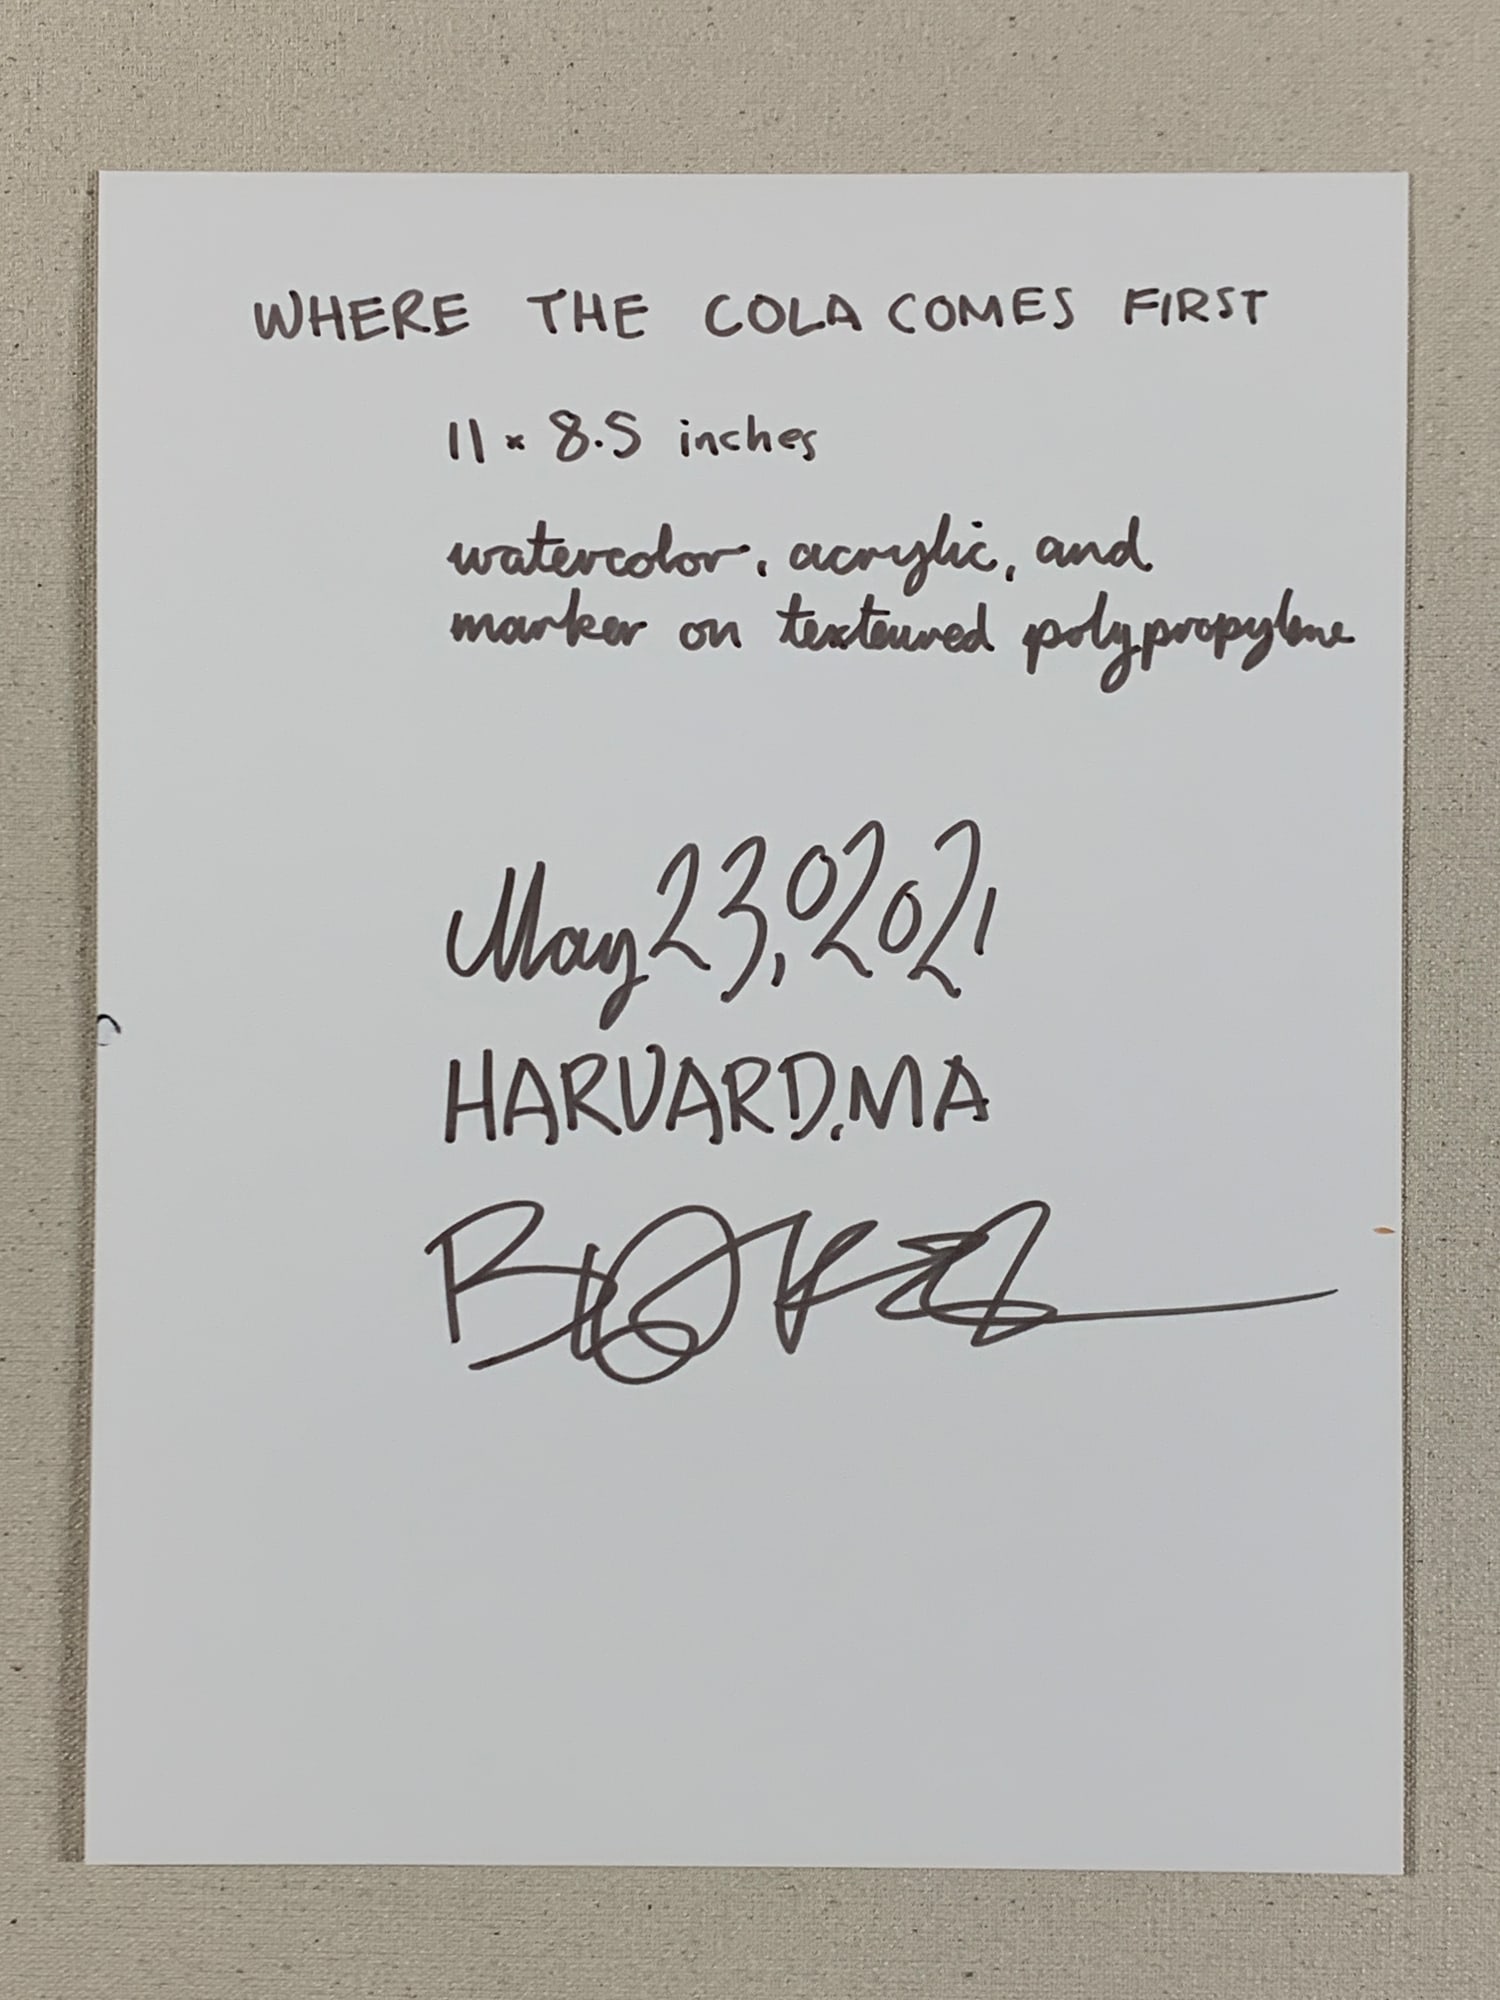 WHERE THE COLA COMES FIRST
11 × 8.5 inches
watercolor, acrylic, and
marker on textured polypropylene
May 23, 2021
HARVARD, MA